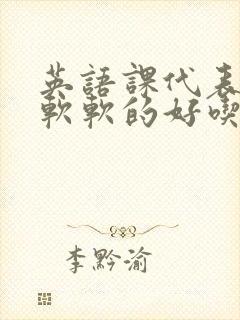 英語課代表
軟軟的好喫
李黔渝